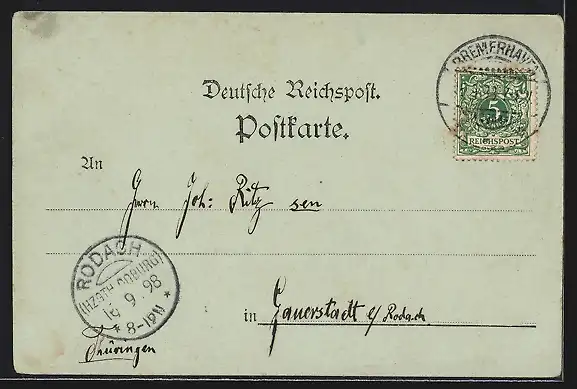 BREMERHAVEN
5
REICHSPOST
Deutsche Reichspost.
Postkarte.
An
Herrn Joh: Ritz sen
RODACH
(HZGTH. COBURG)
16 9. 98
* 8-12V *
in Gauerstadt b/Rodach
Thüringen